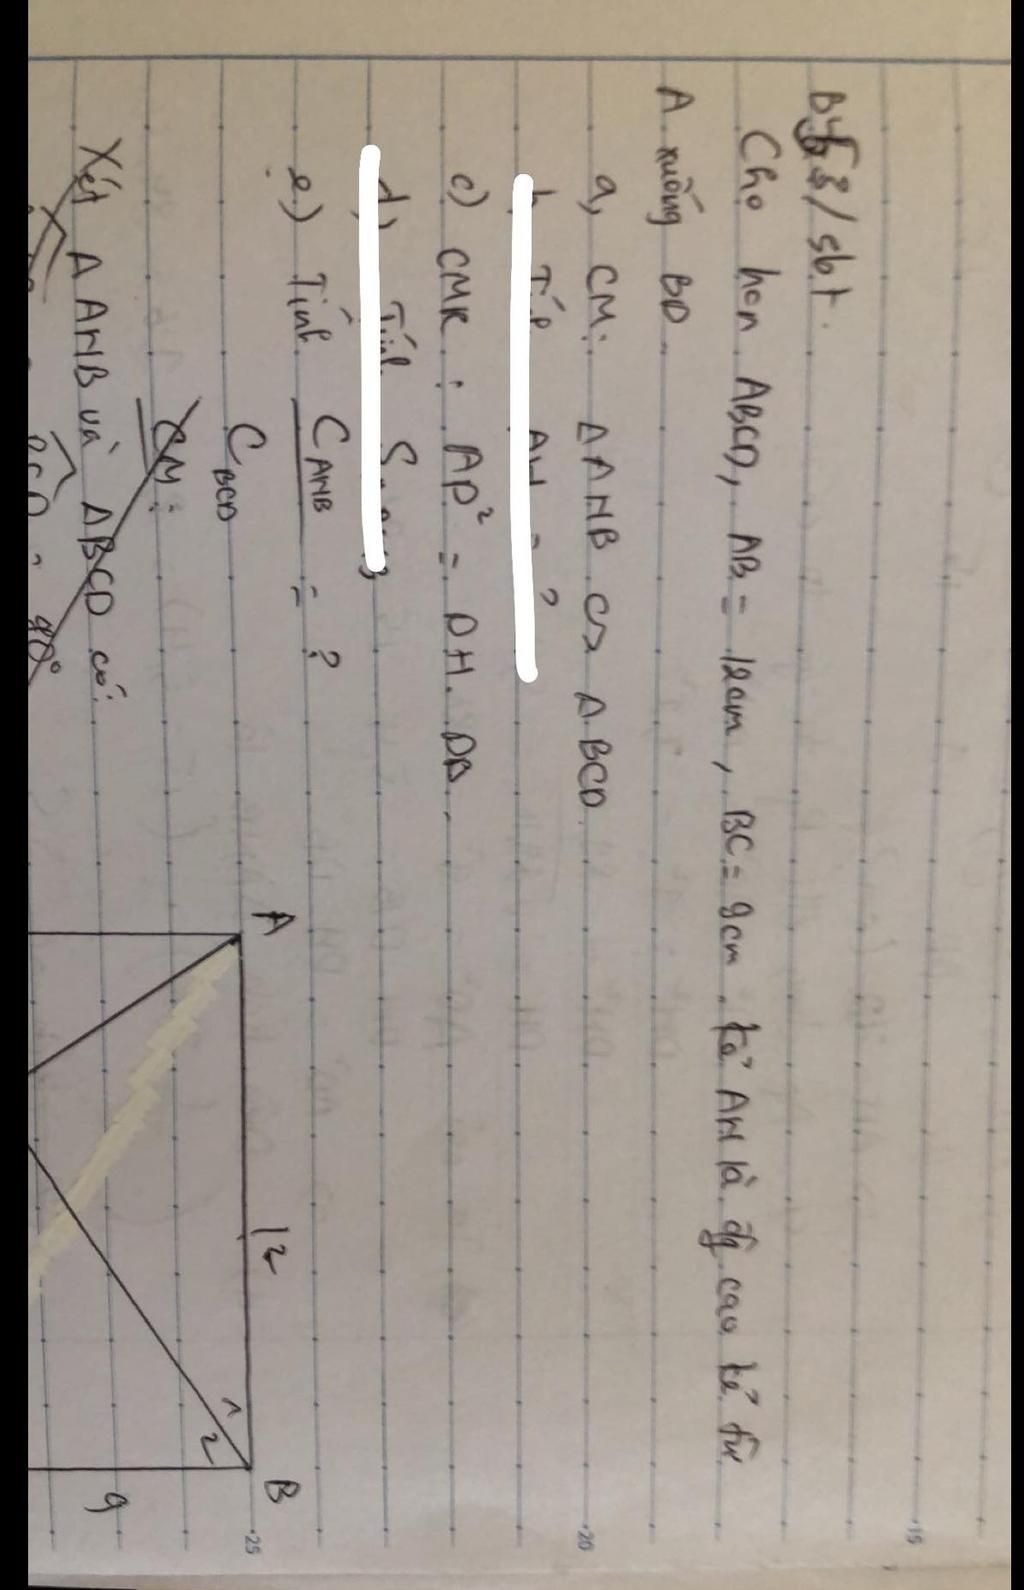 Cho hcn ABCD, AB = 12cm, BC = 9cm. kẻ AH là đg cao kẻ từ
A xuống BD.
a, CM: ΔAHB ∽ ΔBCD
?
c) CMR: AD² = DH.DB.
e) Tính C_AHB / C_BCD = ?
CM:
Xét ΔAHB và ΔBCD có:
90°
A
12
B
1
2
9
15
20
25